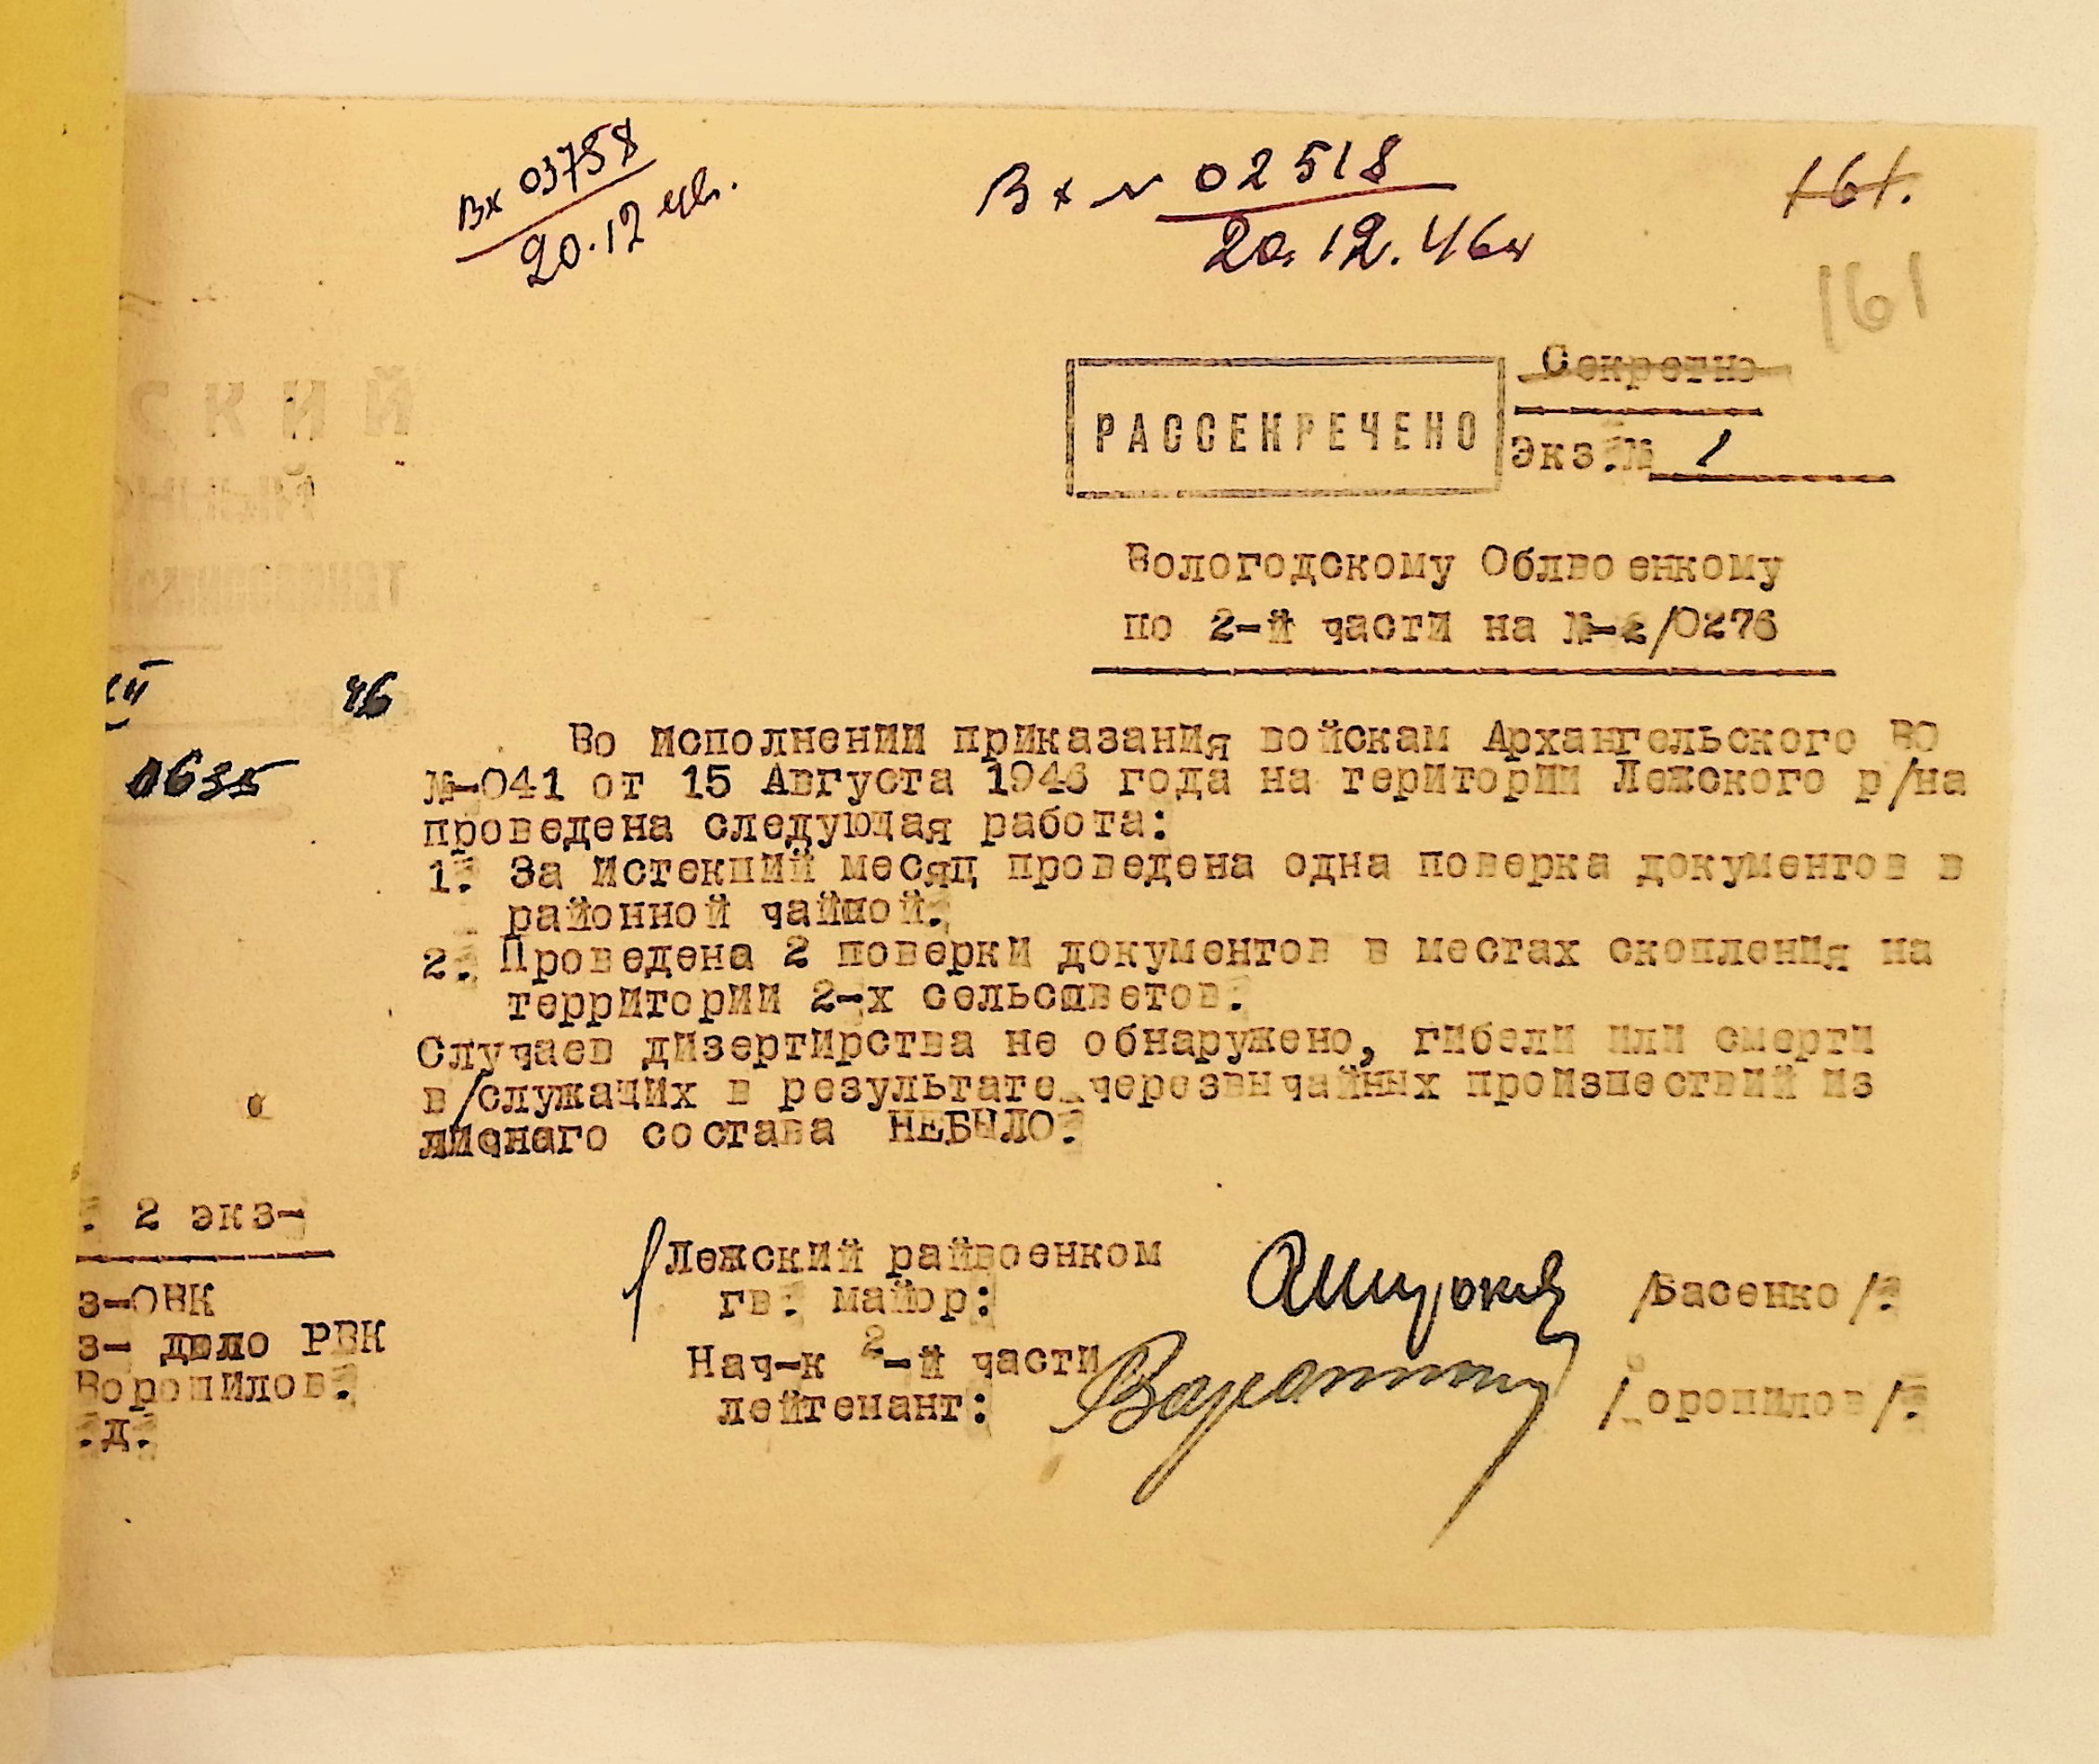 Вх 03758
20.12
Вх № 02518
20.12.46г
161.
161
Секретно
РАССЕКРЕЧЕНО
Экз.№ 1
Вологодскому Облвоенкому
по 2-й части на №-2/0276
46
0635
Во исполнении приказания войскам Архангельского ВО
№-041 от 15 Августа 1946 года на територии Лежского р/на
проведена следующая работа:
1. За истекший месяц проведена одна поверка документов в
районной чайной.
2. Проведена 2 поверки документов в местах скопления на
территории 2-х сельсоветов.
Случаев дизертирства не обнаружено, гибели или смерти
в/служащих в результате черезвычайных произшествий из
личнаго состава НЕБЫЛО.
. 2 экз-
з-ОВК
з- дело РВК
Воропилов.
.д.
Лежский райвоенком
гв. майор:
/Басенко/.
Нач-к 2-й части
лейтенант:
/ оропилов/.